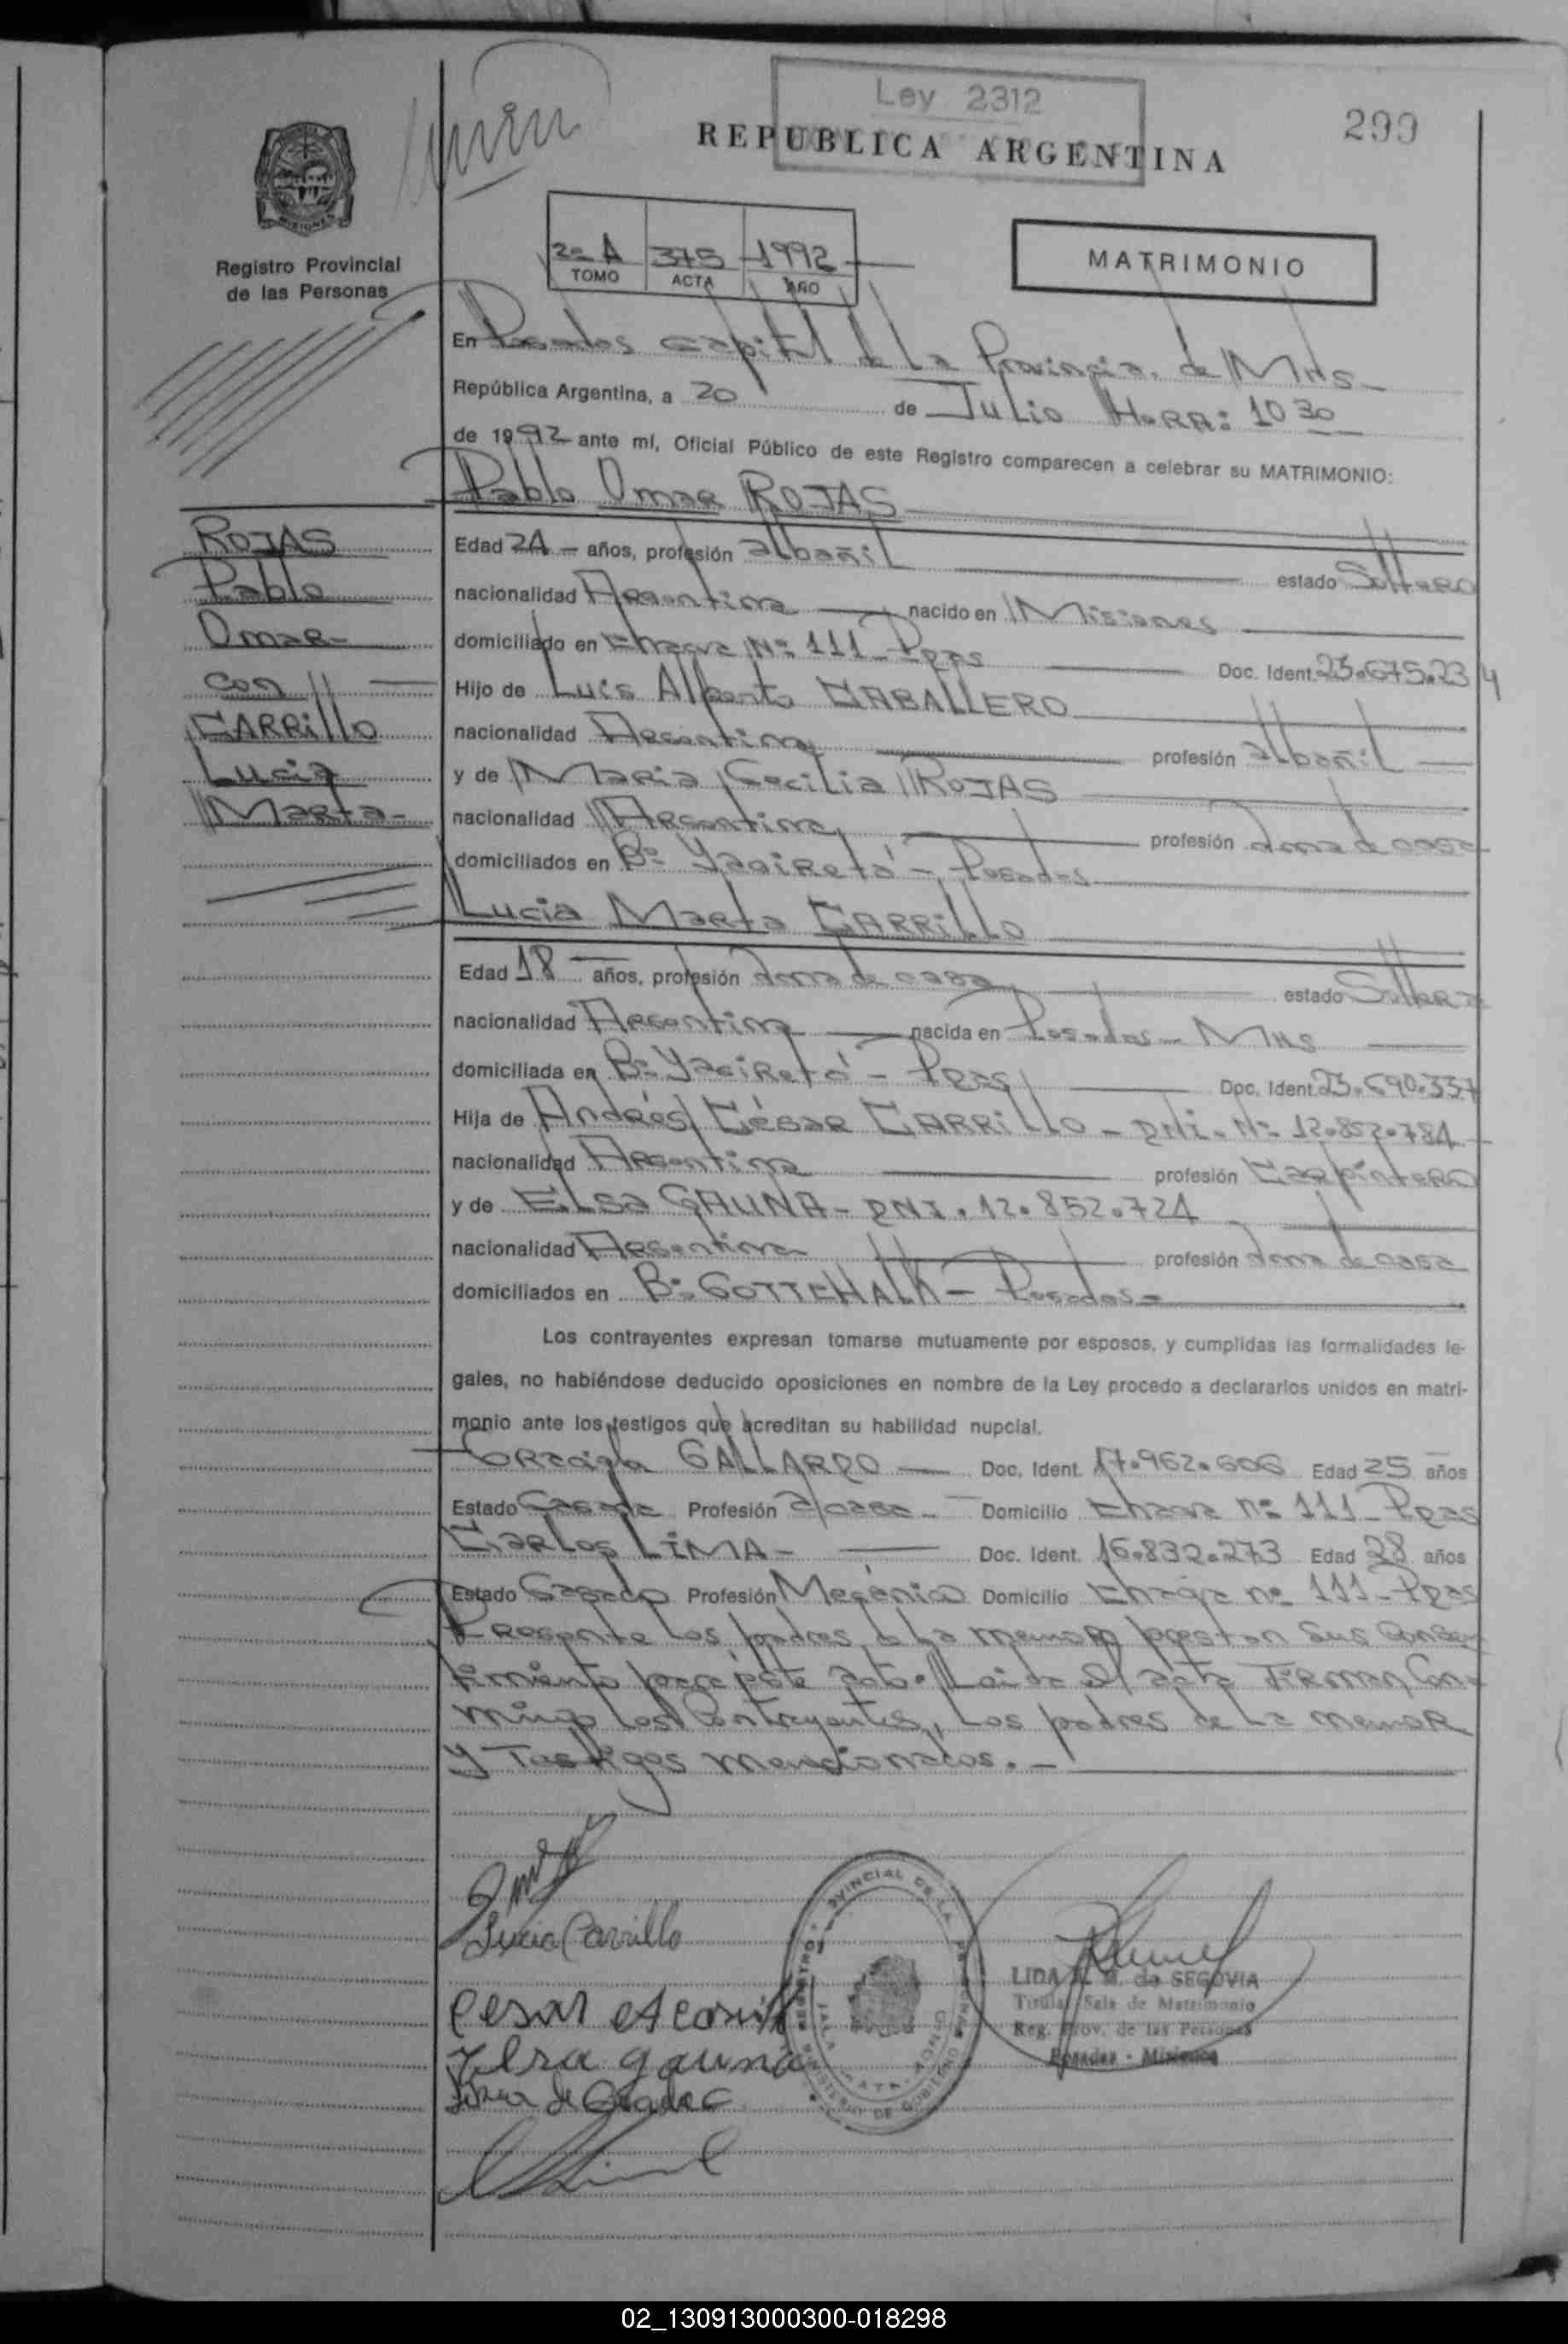 Ley 2312
299
REPUBLICA ARGENTINA
MISIONES
Registro Provincial
de las Personas
2= A 375 1992
TOMO ACTA AÑO
MATRIMONIO
En Posadas Capital de la Provincia de Mns.
República Argentina, a 20 de Julio Hora: 10 30
de 1992 ante mí, Oficial Público de este Registro comparecen a celebrar su MATRIMONIO:
Pablo Omar ROJAS
ROJAS
Pablo
Omar
con
CARRillo
Lucia
Marta
Edad 24 años, profesión albañil estado Soltero
nacionalidad Argentina nacido en Misiones
domiciliado en Chacra Nº 111 - Pdas Doc. Ident. 23.675.234
Hijo de Luis Alberto CABALLERO
nacionalidad Argentina profesión albañil
y de Maria Cecilia ROJAS
nacionalidad Argentina profesión ama de casa
domiciliados en Bº Yaciretá - Posadas
Lucia Marta CARRILLO
Edad 18 años, profesión ama de casa estado Soltera
nacionalidad Argentina nacida en Posadas - Mns
domiciliada en Bº Yaciretá - Pdas Doc. Ident. 23.690.337
Hija de Andrés César CARRILLO - DNI. Nº 12.852.784
nacionalidad Argentina profesión Carpintero
y de Elsa GAUNA - DNI. 12.852.724
nacionalidad Argentina profesión ama de casa
domiciliados en Bº GOTTCHALK - Posadas
Los contrayentes expresan tomarse mutuamente por esposos, y cumplidas las formalidades le-
gales, no habiéndose deducido oposiciones en nombre de la Ley procedo a declararlos unidos en matri-
monio ante los testigos que acreditan su habilidad nupcial.
GALLARDO Doc. Ident. 17.962.606 Edad 25 años
Estado Casada Profesión a/casa Domicilio Chacra nº 111 - Pdas
Carlos LIMA - Doc. Ident. 16.832.273 Edad 28 años
Estado Casado Profesión Mecánico Domicilio Chacra nº 111 - Pdas
Presente los padres de la menor prestan sus consen-
timiento para éste acto. Leida el acta firman con-
migo los Contrayentes, los padres de la menor
y Testigos mencionados. -
Lucia Carrillo
Cesar
Elsa gauna
LIDA M. de SEGOVIA
Titular Sala de Matrimonio
Reg. Prov. de las Personas
Posadas - Misiones
02_130913000300-018298